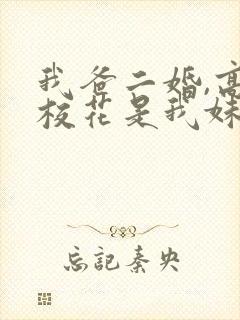 我爸二婚,高
校花是我妹
忘记秦央